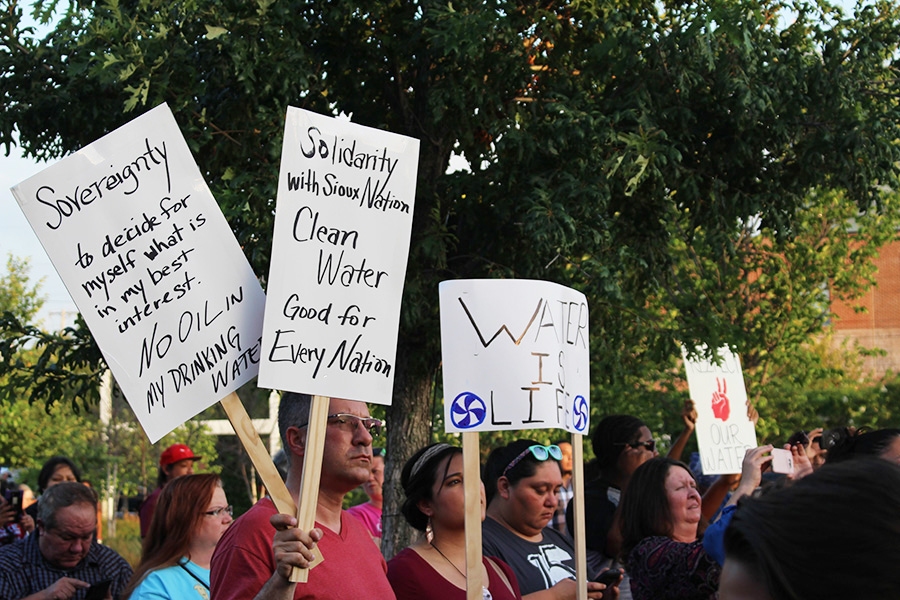 Sovereignty
to decide for
myself what is
in my best
interest.
NO OIL IN
MY DRINKING
WATER
Solidarity
with Sioux Nation
Clean
Water
Good for
Every Nation
WATER
IS
LIFE
OUR
WATER